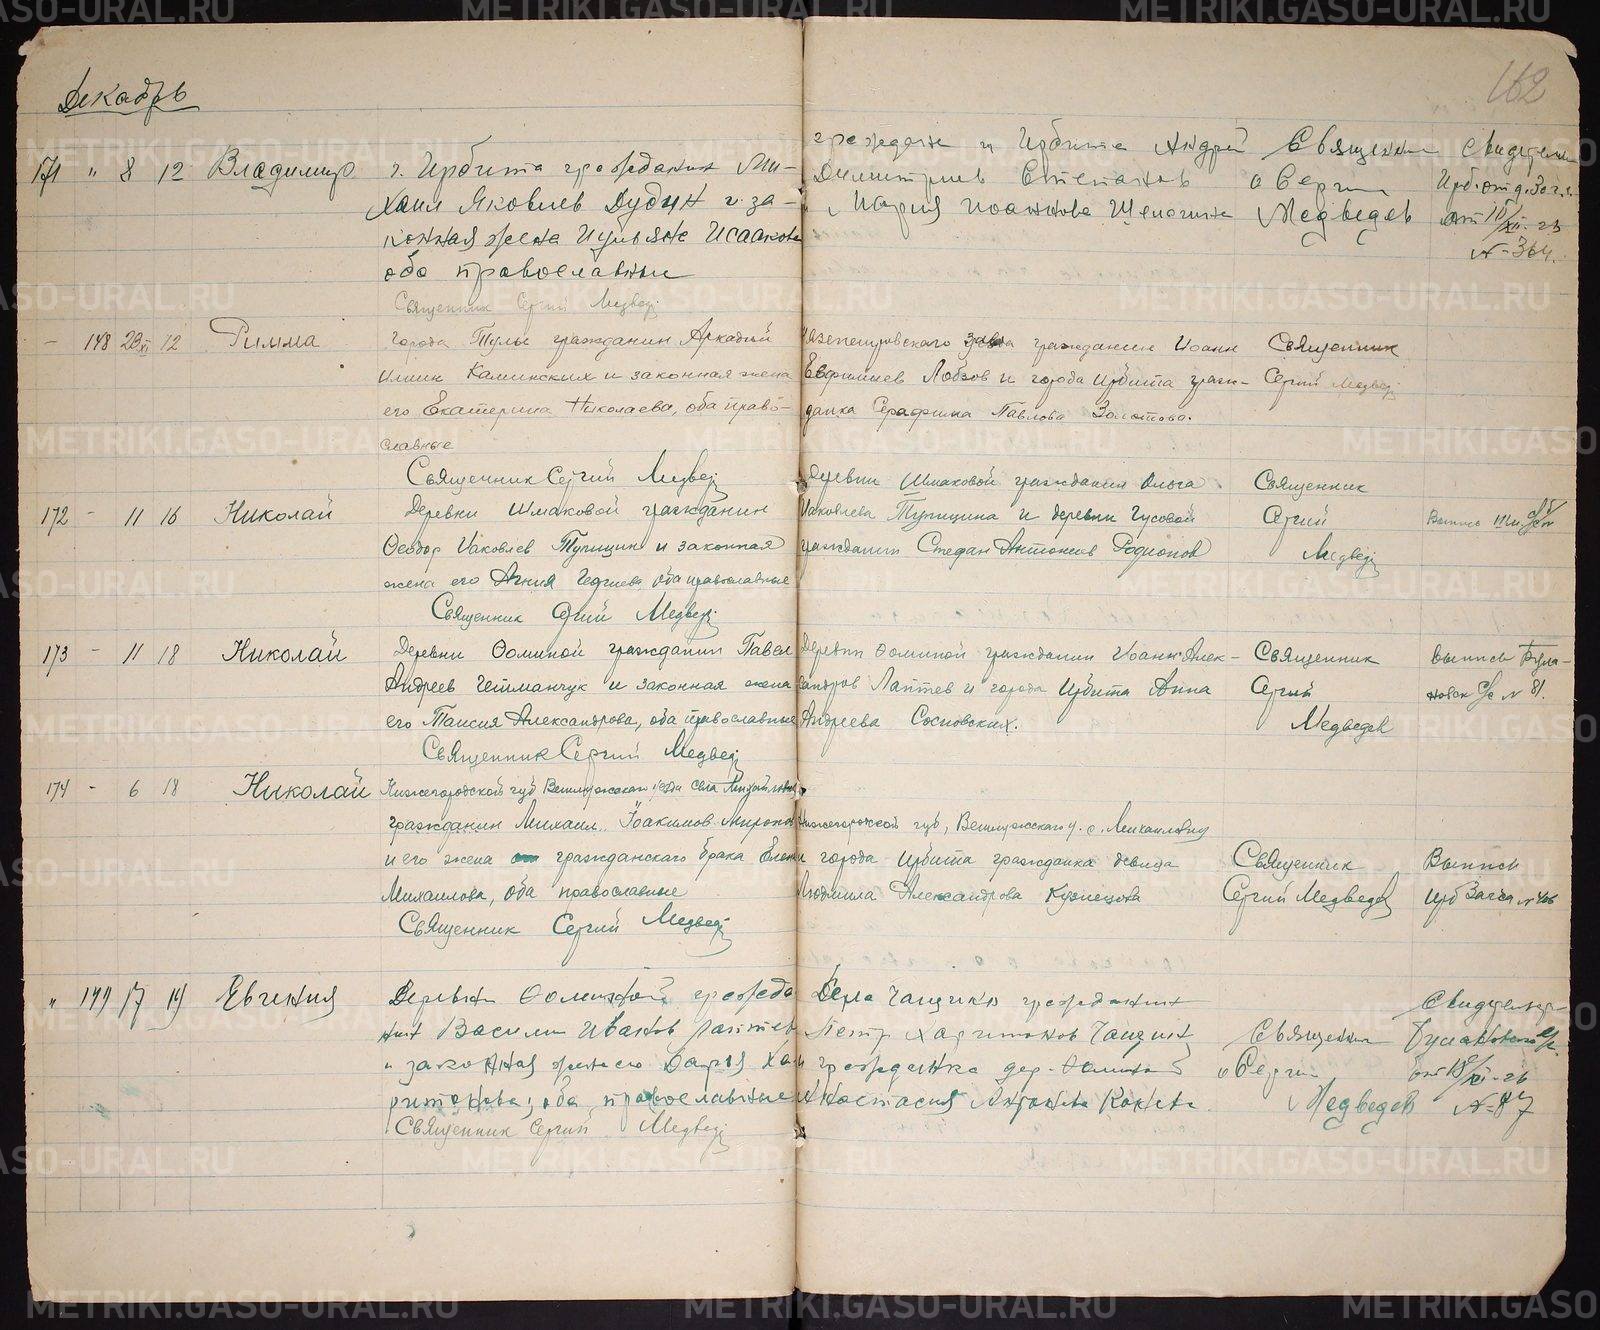 162
Декабрь
171 " 8 12 Владимир
г. Ирбита гражданин Ми-
хаил Яковлев Дудин и за-
конная жена Иульяне Исаакова
оба православные
Священник Сергий Медведев
граждане г. Ирбита Андрей
Димитриев Степанов
и Мария Иоаннова Щепагина
Священник
о Сергии
Медведев
Свидетели
от 15/XII-23
№ 364.
- 148 23/XI 12 Римма
города Тулы гражданин Аркадий
Ильин Каминских и законная жена
его Екатерина Николаева, оба право-
славные
Священник Сергий Медведев
завода гражданин Иоанн
Евфимиев Лобзов и города Ирбита граж-
данка Серафима Павлова Золотова.
Священник
Сергий Медведев
172 - 11 16 Николай
Деревни Шмаковой гражданин
Феодор Иаковлев Тупицин и законная
жена его Агния Георгиева, оба православные
Священник Сергий Медведев
Деревни Шмаковой гражданка Ольга
Иаковлева Тупицина и деревни Гусевой
гражданин Стефан Антониев Родионов
Священник
Сергий
Медведев
Выпись
173 - 11 18 Николай
Деревни Фоминой гражданин Павел
Андреев Гетманчук и законная жена
его Таисия Александрова, оба православные
Священник Сергий Медведев
Деревни Фоминой гражданин Иоанн Алек-
сандров Лаптев и города Ирбита Анна
Андреева Сосновских.
Священник
Сергий
Медведев
Выпись Була-
новск с/с № 81.
174 - 6 18 Николай
Нижегородской губ Ветлужского уезда села
гражданин Михаил Иоакимов Миронов
и его жена гражданского брака Елена
Михаилова, оба православные
Священник Сергий Медведев
Нижегородской губ, Ветлужского у. с.
и города Ирбита гражданка девица
Людмила Александрова Кузнецова
Священник
Сергий Медведев
Выпись
Ирб Загса №
" 149 17 19 Евгения
Деревни Фоминой гражда-
нин Василий Иванов Лаптев
и законная жена его Дария Ха-
ритонова, оба православные
Священник Сергий Медведев
Дер. гражданин
Петр Харитонов Чащин
и гражданка дер. Фоминой
Анастасия Антонова
Священник
о Сергии
Медведев
от 18/XII-23
№ 87